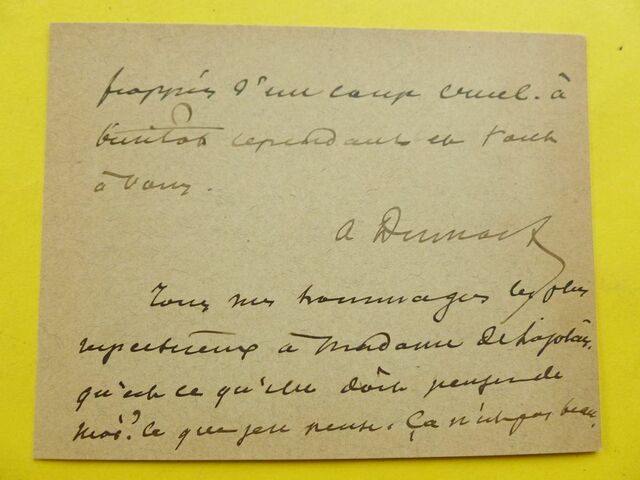 frappés d'un coup cruel. à
bientôt cependant et tout
à vous.
A Dumas f
Tous mes hommages les plus
respectueux à Madame
qu'est ce qu'elle doit penser de
moi? ce que j'en pense. Ça n'est pas beau.